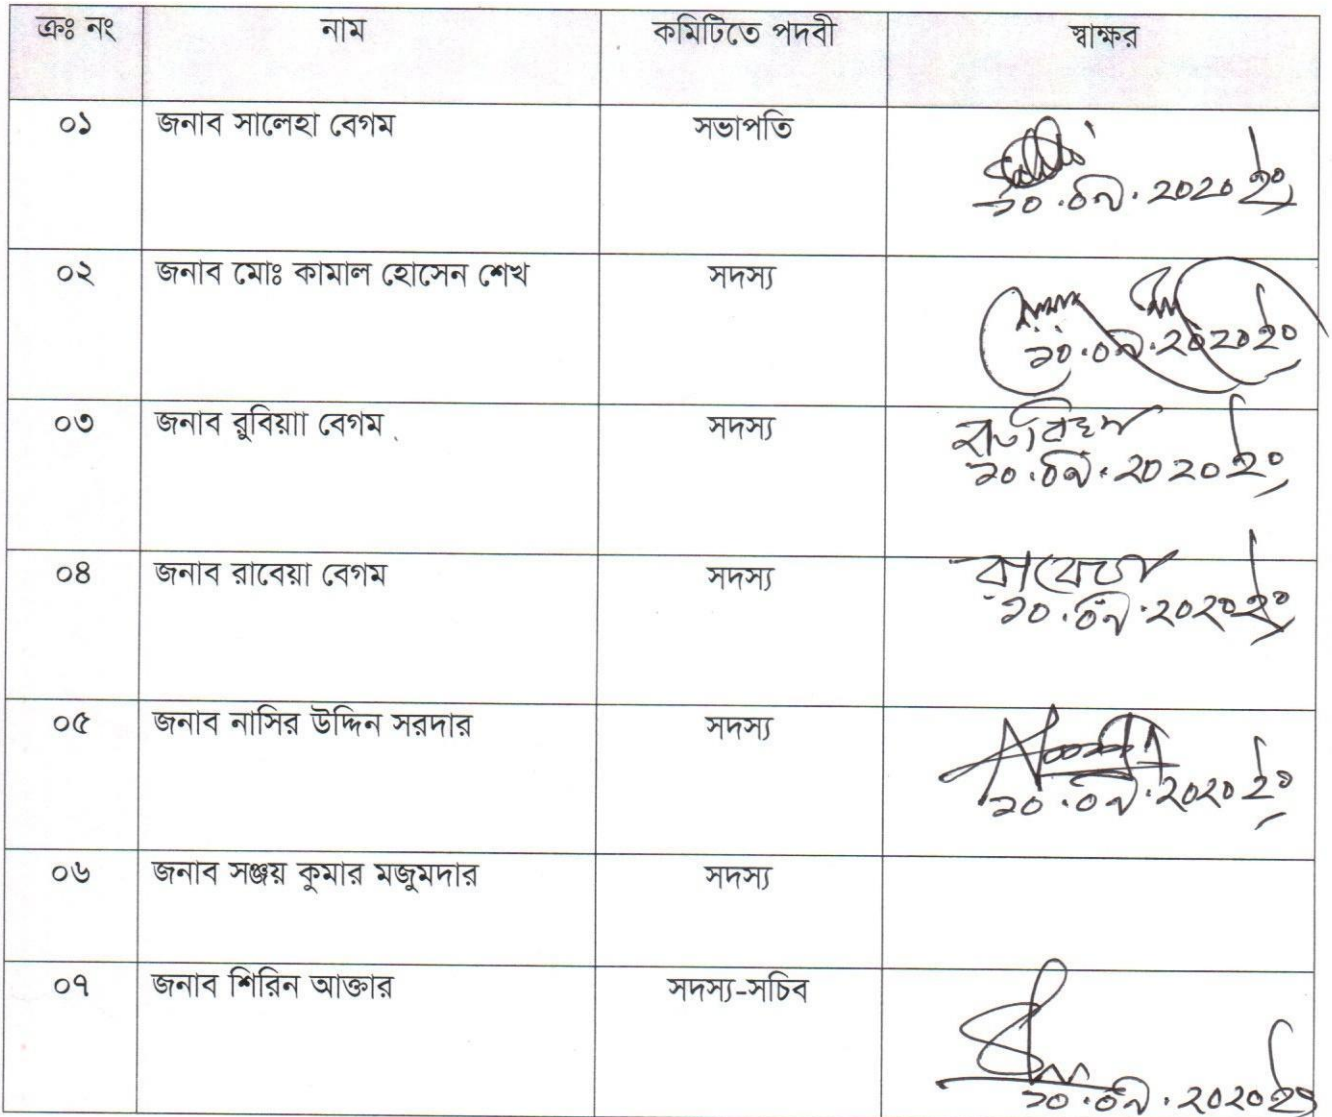 ক্রঃ নং নাম কমিটিতে পদবী স্বাক্ষর
০১ জনাব সালেহা বেগম সভাপতি
২০.০৯.২০২০ খ্রিঃ
০২ জনাব মোঃ কামাল হোসেন শেখ সদস্য
২০.০৯.২০২০ খ্রিঃ
০৩ জনাব রুবিয়াা বেগম সদস্য
২০.০৯.২০২০ খ্রিঃ
০৪ জনাব রাবেয়া বেগম সদস্য
রাবেয়া
২০.০৯.২০২০ খ্রিঃ
০৫ জনাব নাসির উদ্দিন সরদার সদস্য
২০.০৯.২০২০ খ্রিঃ
০৬ জনাব সঞ্জয় কুমার মজুমদার সদস্য
০৭ জনাব শিরিন আক্তার সদস্য-সচিব
২০.০৯.২০২০ খ্রিঃ